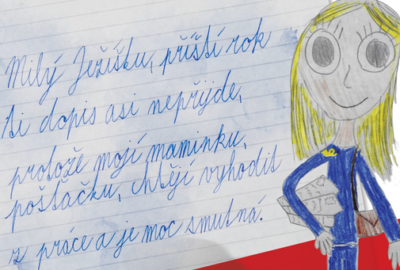 Milý Ježíšku, příští rok
ti dopis asi nepřijde,
protože mojí maminku,
pošťačku, chtějí vyhodit
z práce a je moc smutná.